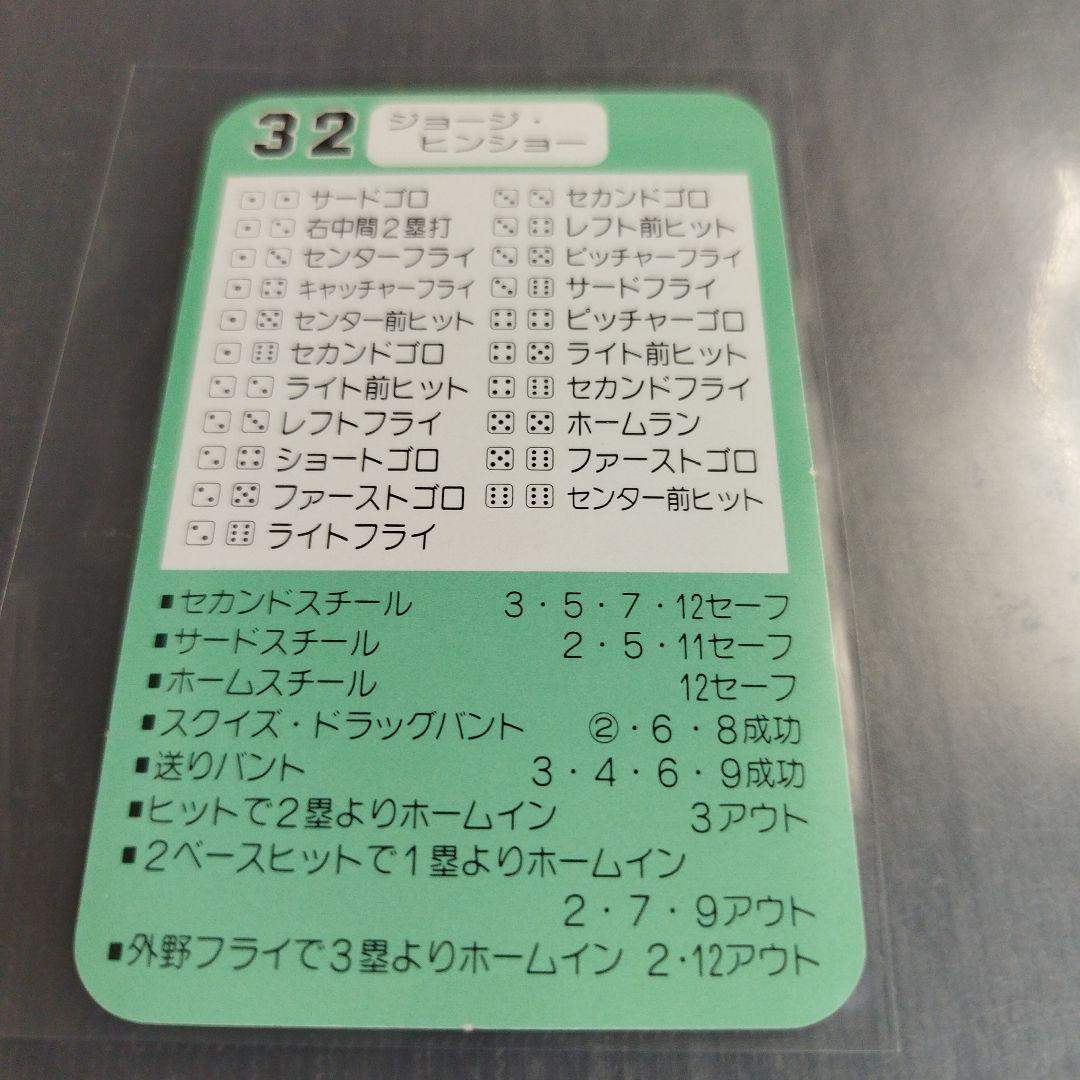 32
ジョージ・
ヒンショー
サードゴロ
右中間2塁打
センターフライ
キャッチャーフライ
センター前ヒット
セカンドゴロ
ライト前ヒット
レフトフライ
ショートゴロ
ファーストゴロ
ライトフライ
セカンドゴロ
レフト前ヒット
ピッチャーフライ
サードフライ
ピッチャーゴロ
ライト前ヒット
セカンドフライ
ホームラン
ファーストゴロ
センター前ヒット
■セカンドスチール 3・5・7・12セーフ
■サードスチール 2・5・11セーフ
■ホームスチール 12セーフ
■スクイズ・ドラッグバント ②・6・8成功
■送りバント 3・4・6・9成功
■ヒットで2塁よりホームイン 3アウト
■2ベースヒットで1塁よりホームイン
2・7・9アウト
■外野フライで3塁よりホームイン 2・12アウト